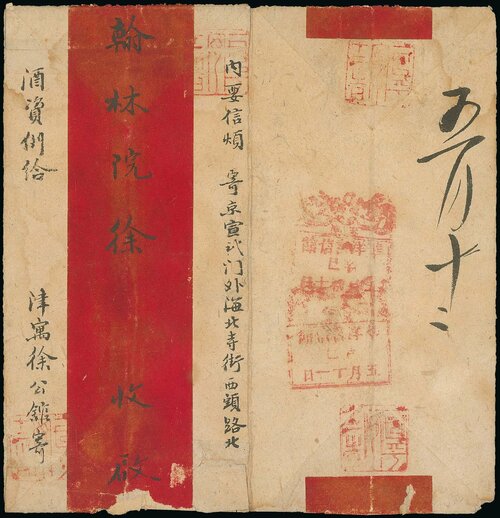 五月十二
五月十一日
内要信煩 寄京宣武门外海北寺街西頭路北
翰林院徐 收啟
酒資例給 津寓徐公館寄